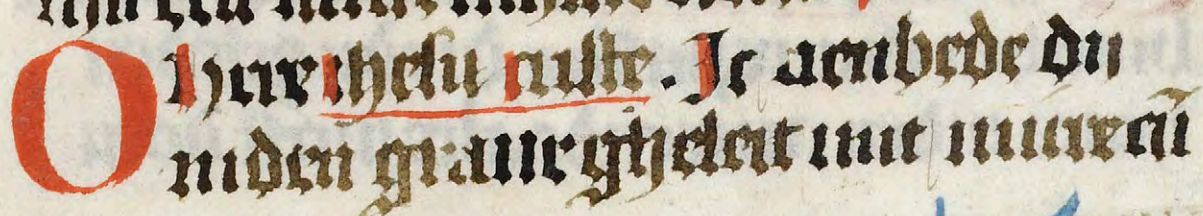 O here ihesu criste. Ic aenbede di
in den graue gheleit mit mirre en̄